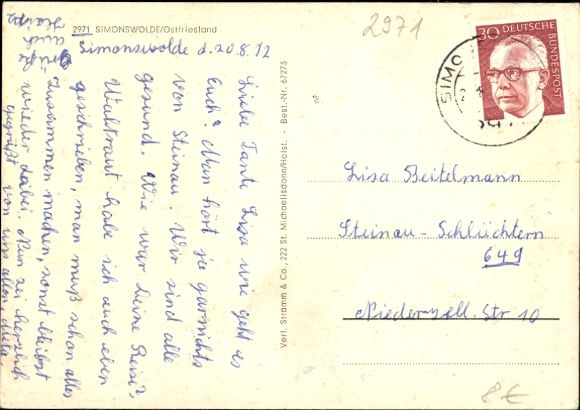 2971 SIMONSWOLDE/Ostfriesland
Simonswolde d. 20.8.72
Liebe Tante Lisa wie geht es
Euch? Man hört ja garnichts
von Steinau. Wir sind alle
gesund. Wie war Deine Reise?
Waltraut habe ich auch eben
geschrieben, man muß schon alles
zusammen machen, sonst bleibst
wieder dabei. Nun sei herzlich
gegrüßt von uns allen, deine
auch
Verl. Stramm & Co., 222 St. Michaelisdonn/Holst. - Best.-Nr. 6/273
2971
30
DEUTSCHE BUNDESPOST
SIMO
Lisa Beitelmann
Steinau-Schlüchtern
649
Niederzell. Str 10
8€